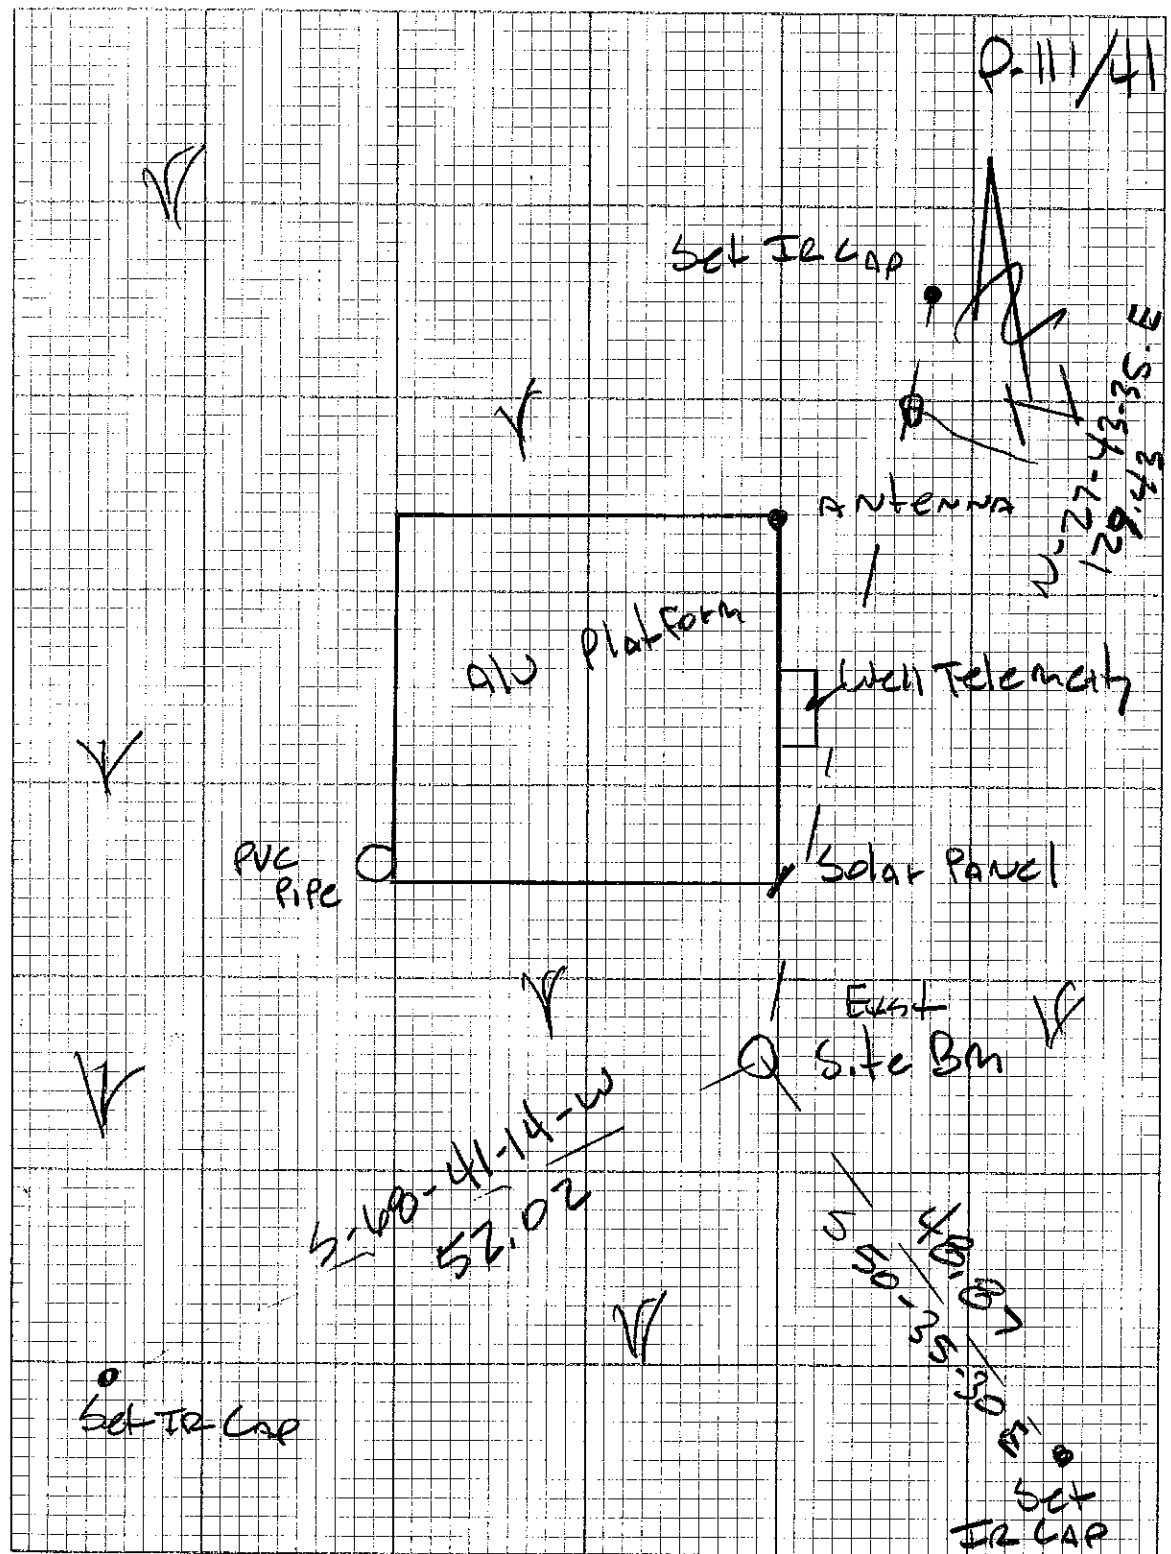 P. 111/41
Set IR CAP
N-27-43-35-E
129.43
ANtENNA
Platform
Well Telemetry
PVC
PiPe
Solar PANel
Exist
Site Bm
S-60-41-14-W
52.02
S 50-35-30 E
Set IR CAP
Set
IR CAP